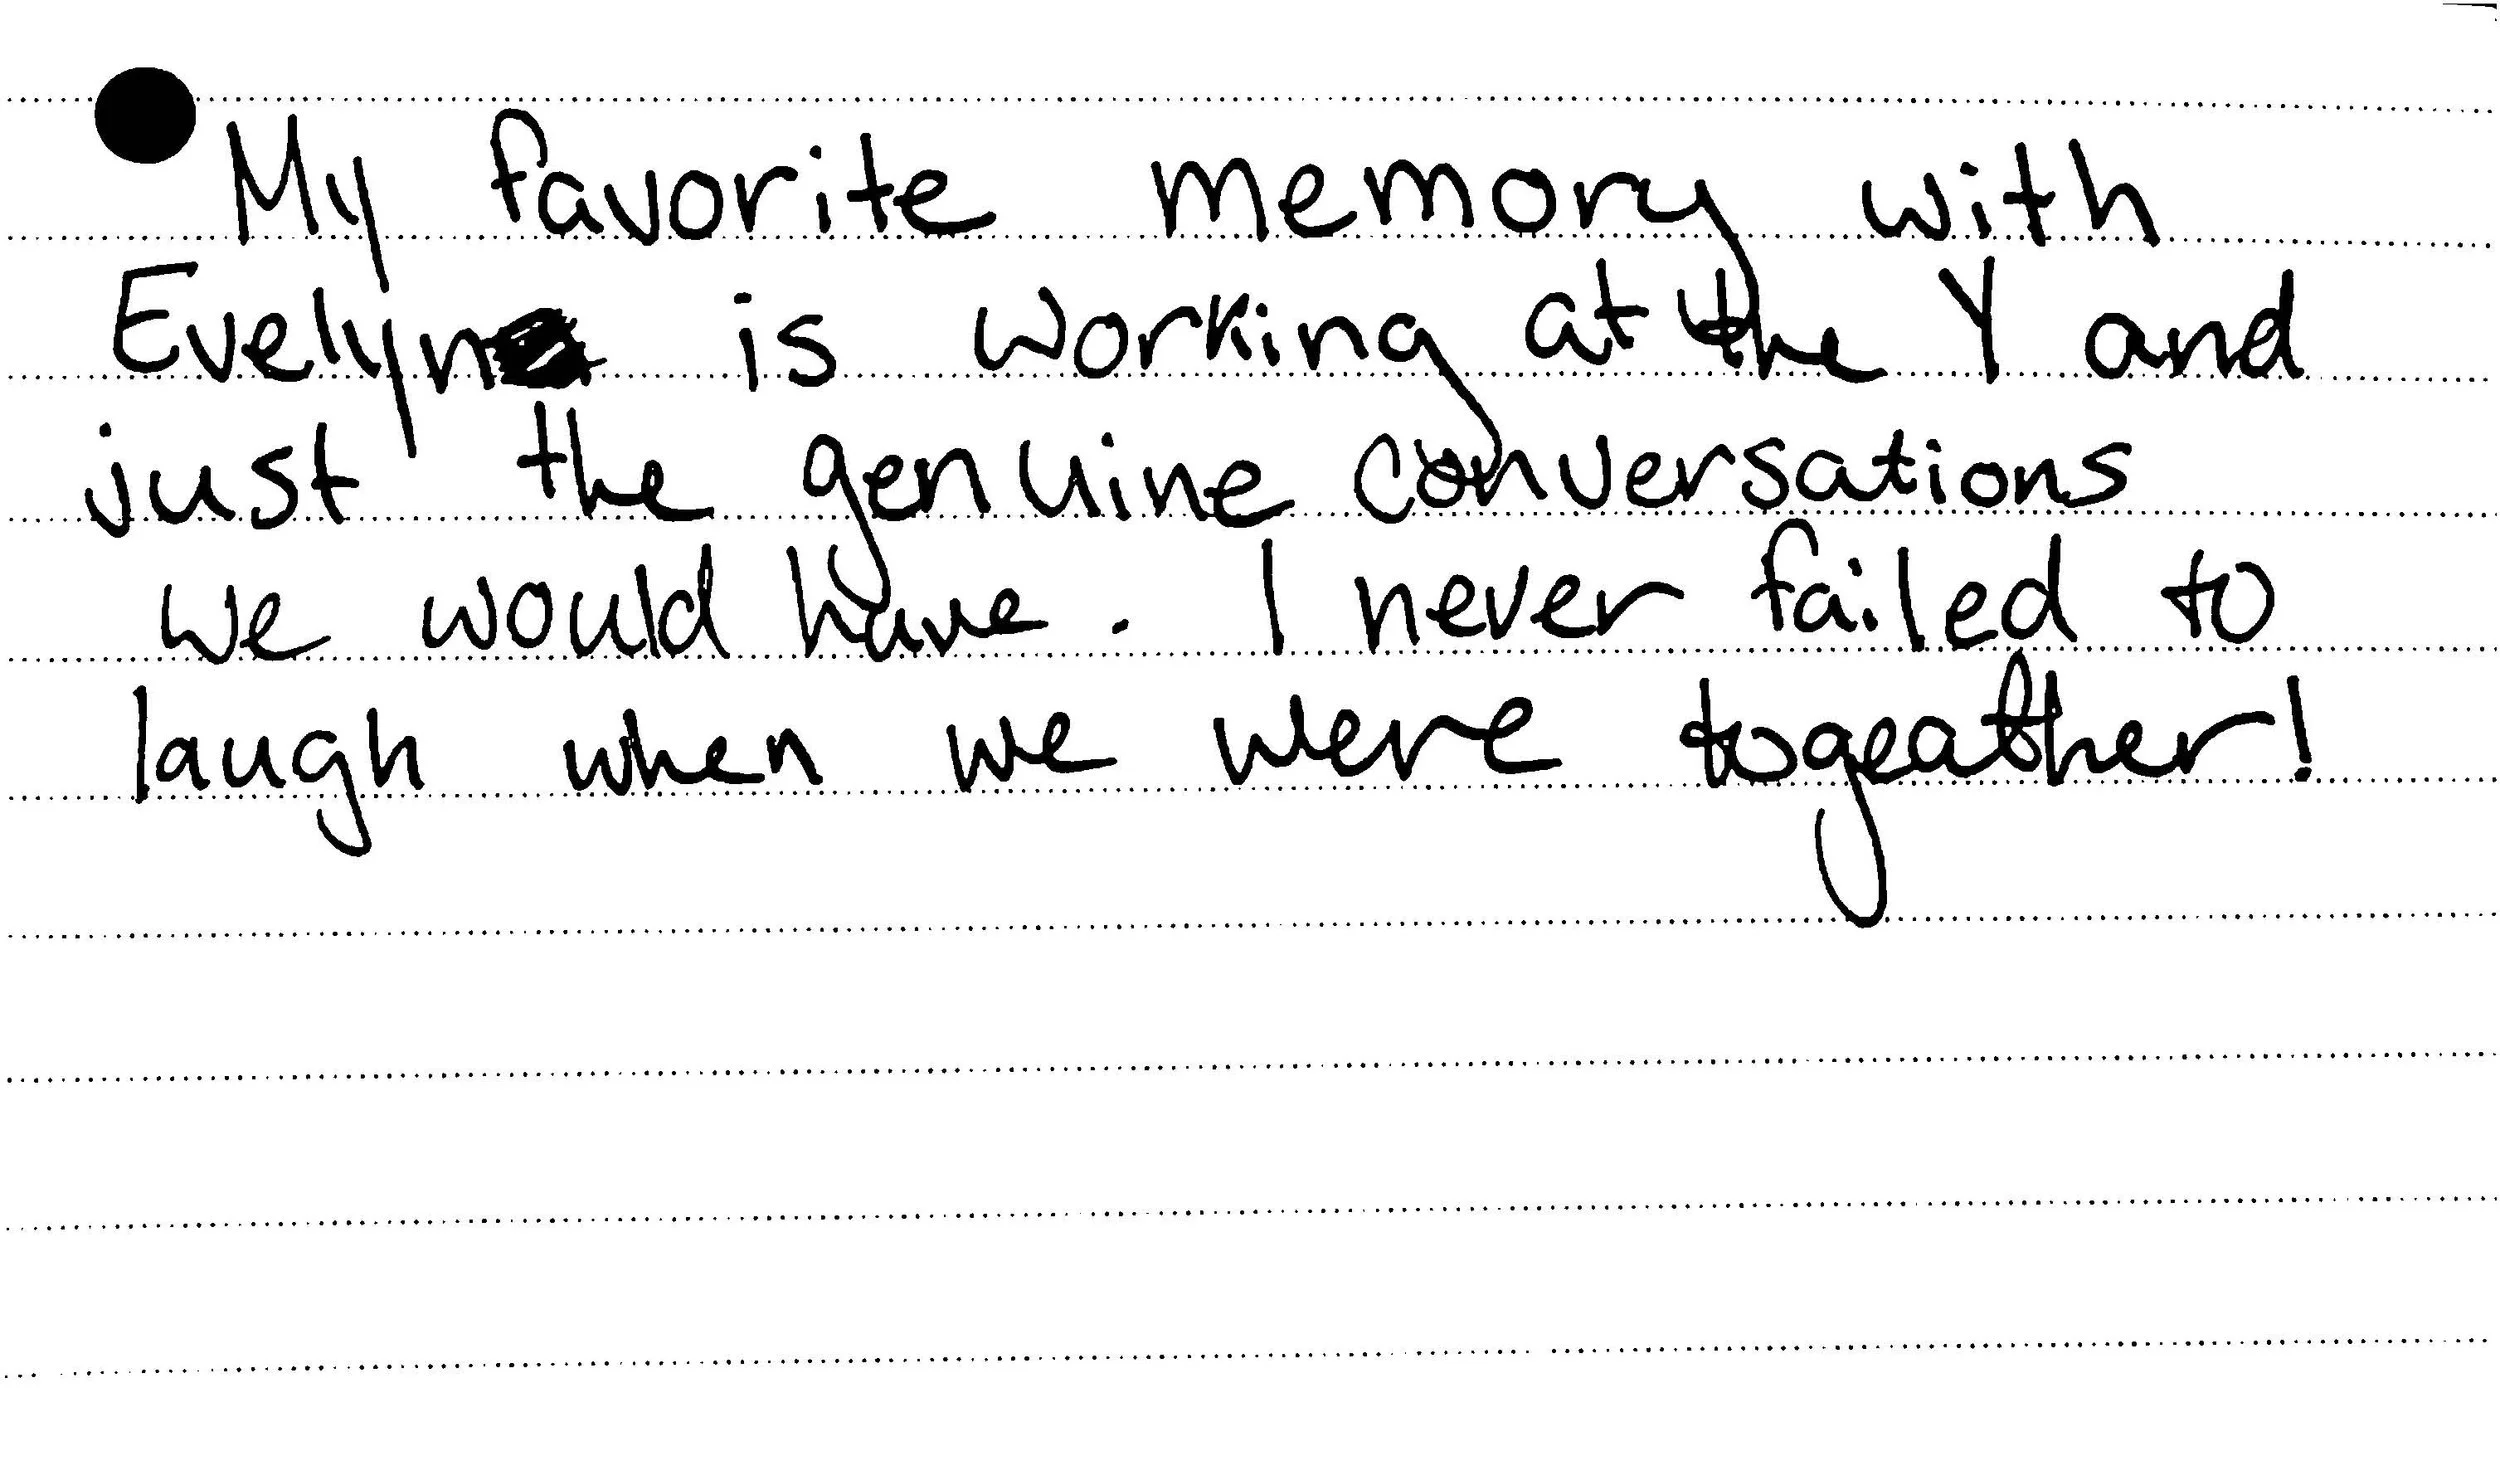 My favorite memory with
Evelyn is working at the Y and
just the genuine conversations
we would have. I never failed to
laugh when we were togeather!